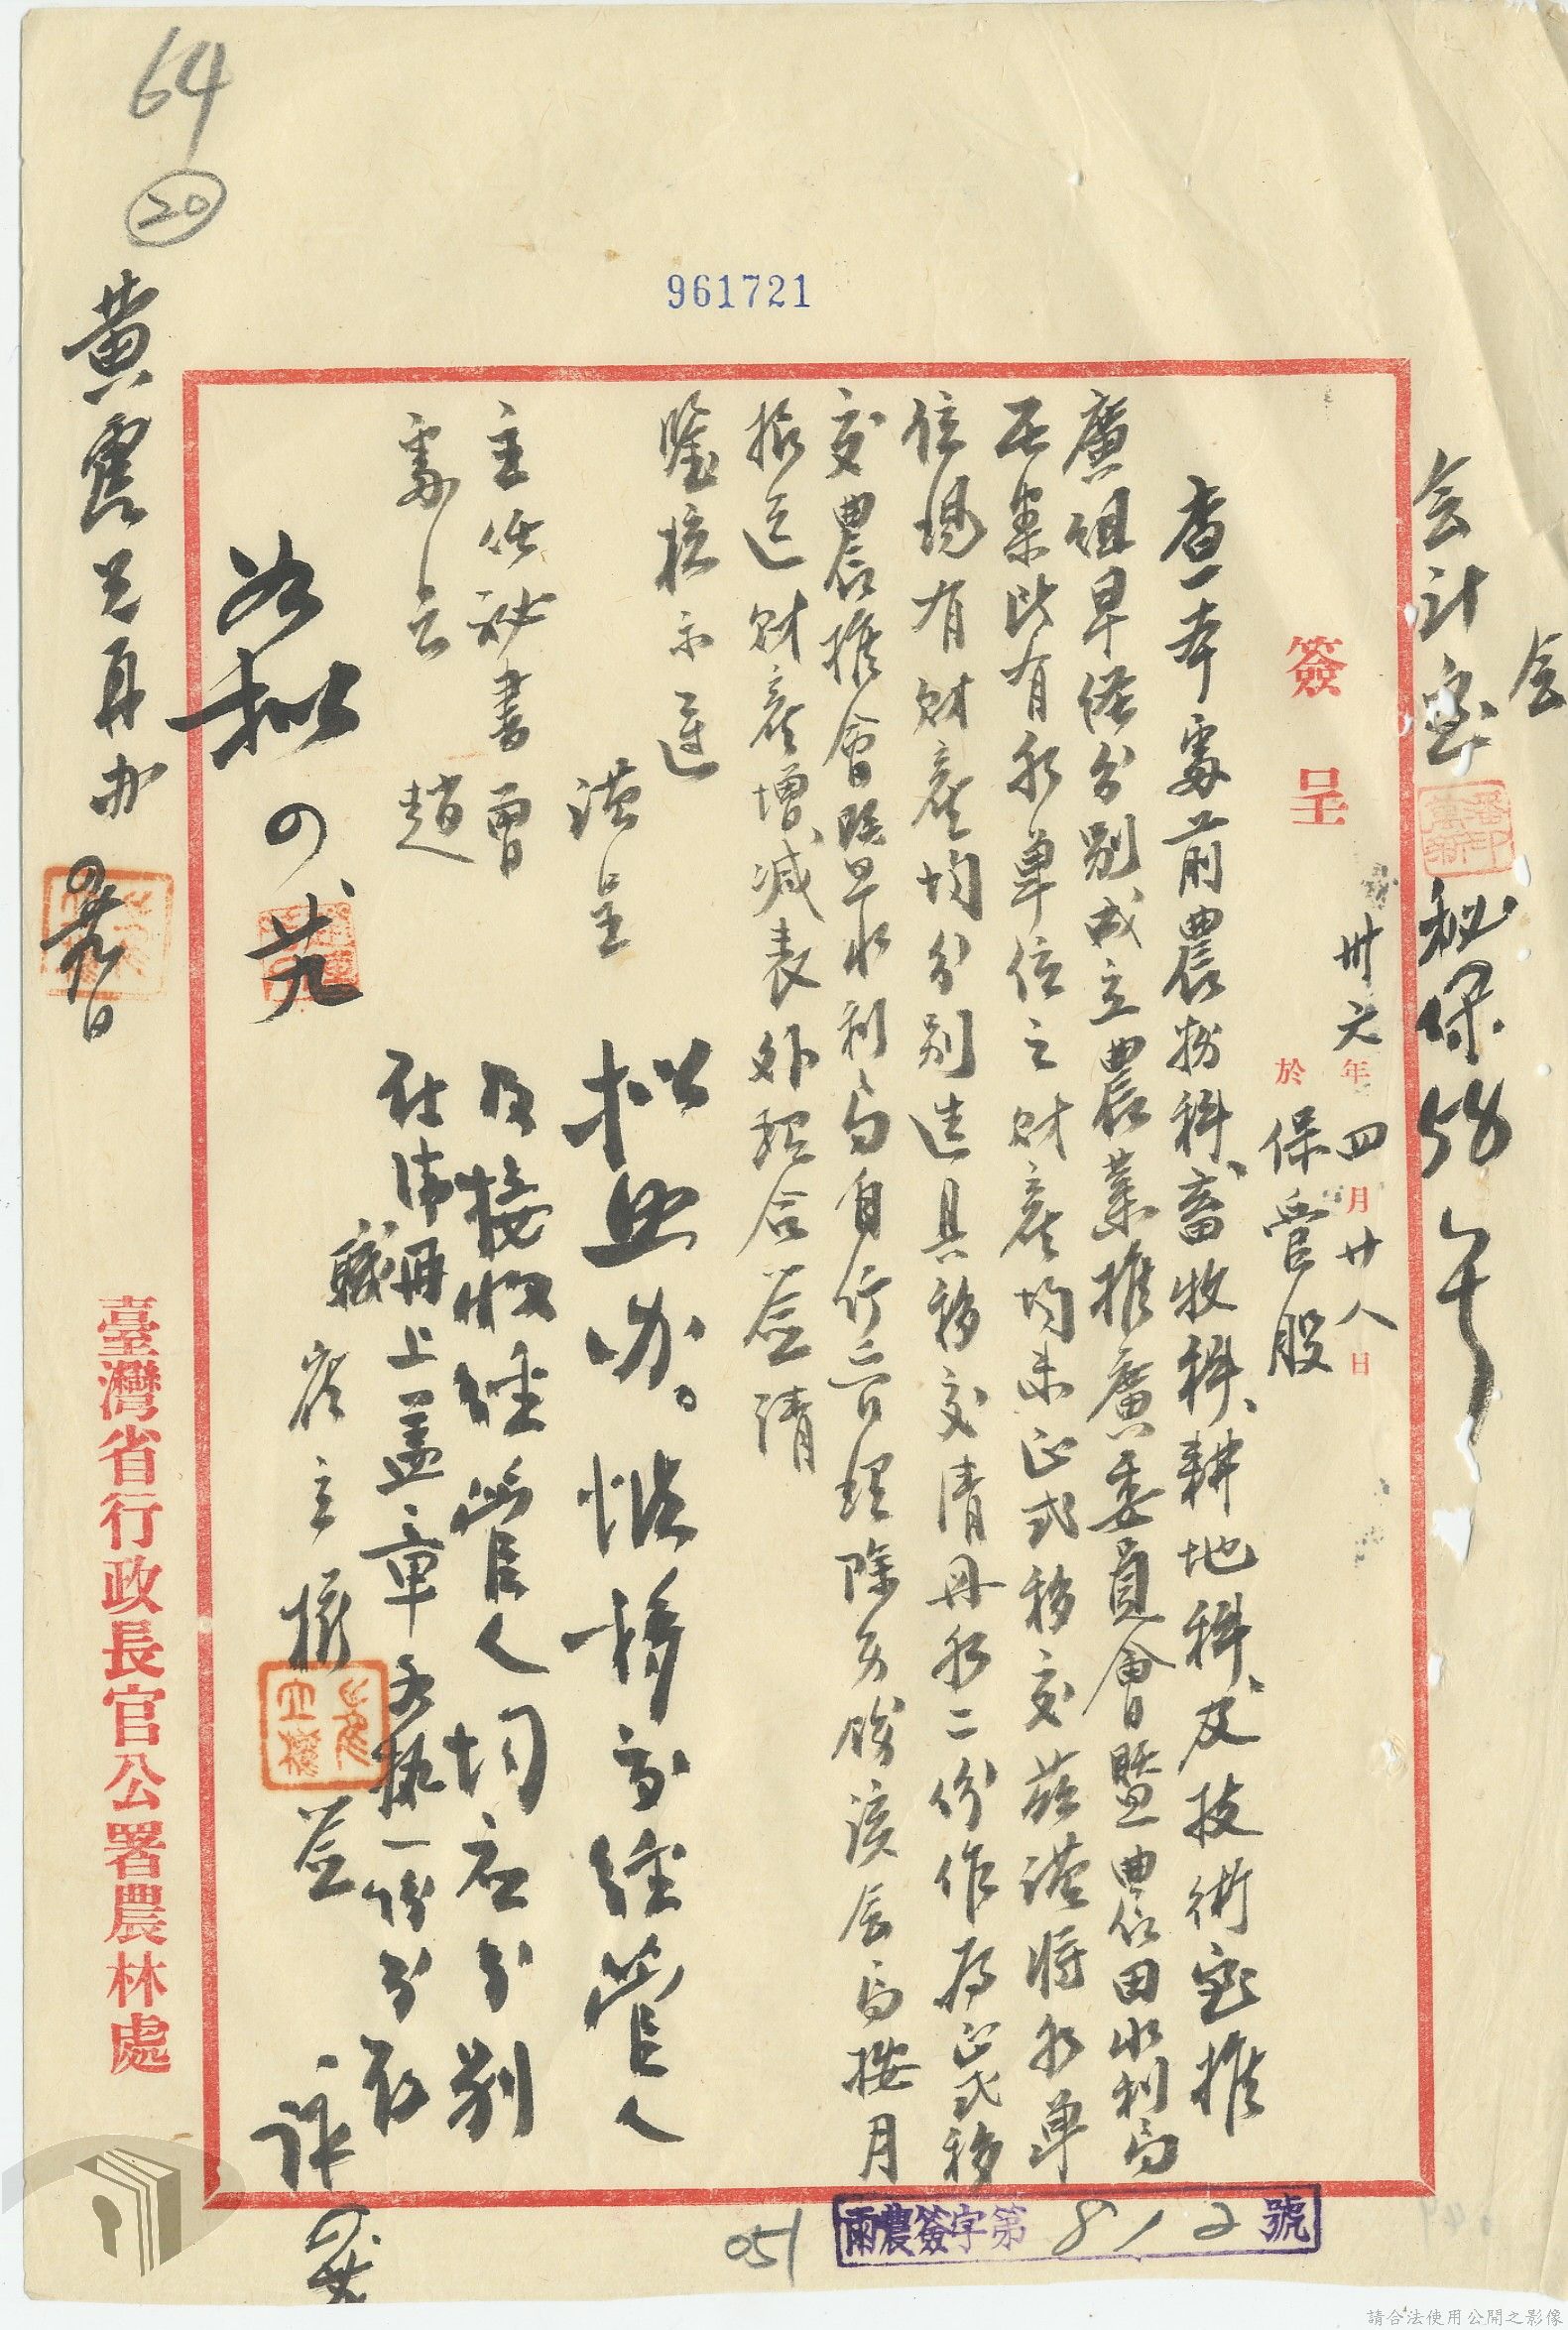 64
20
961721
会
会計室
秘保58
簽呈
卅六年四月廿八日
於保管股
查本處前農務科、畜牧科、耕地科、及技術室推
廣組早經分別成立農業推廣委員會暨農田水利局
在案所有於單位之財產均未正式移交茲謹將於單
位現有財產均分別造具移交清冊於二份作為正式移
交農推會暨水利局自行管理除另飭該會局按月
填送財產增減表外理合簽請
鑒核示遵
謹呈
主任秘書曹
處長 趙
擬照办。惟移交經管人
及接收經管人均应分别
在清冊上盖章各执一份分存
職 崔立樸 签
如拟
黄震兄再办
臺灣省行政長官公署農林處
兩農簽字第812號
051
請合法使用公開之影像